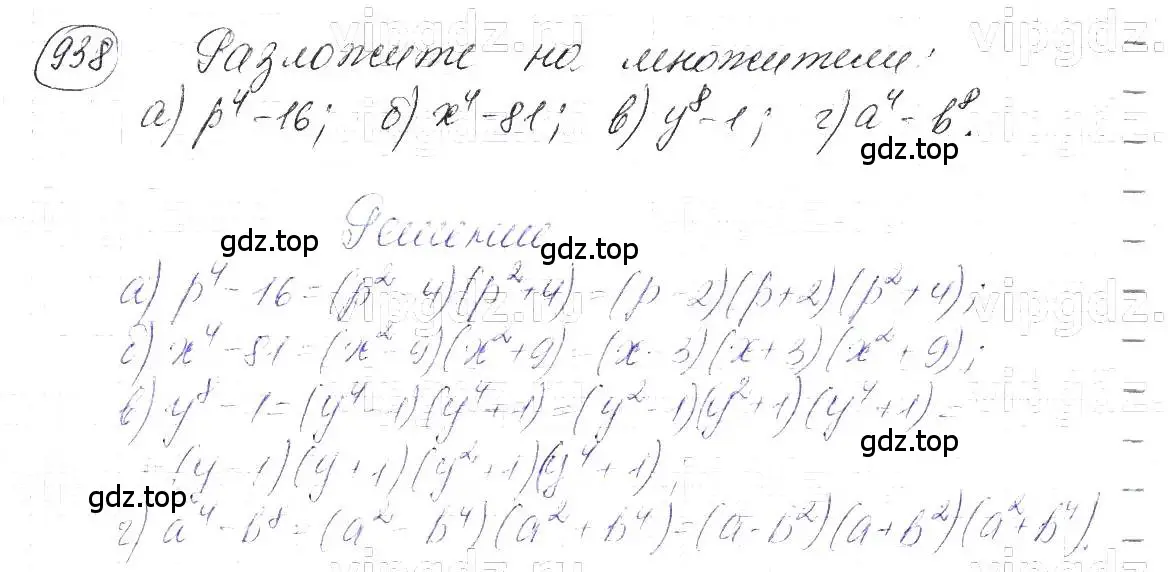 938 Разложите на множители:
а) p⁴-16; б) x⁴-81; в) y⁸-1; г) a⁴-b⁸.
gdz.top
Решение
gdz.top gdz.top
а) p⁴-16=(p²-4)(p²+4)=(p-2)(p+2)(p²+4);
б) x⁴-81=(x²-9)(x²+9)=(x-3)(x+3)(x²+9);
в) y⁸-1=(y⁴-1)(y⁴+1)=(y²-1)(y²+1)(y⁴+1)=
gdz.top
=(y-1)(y+1)(y²+1)(y⁴+1);
gdz.top
г) a⁴-b⁸=(a²-b⁴)(a²+b⁴)=(a-b²)(a+b²)(a²+b⁴).